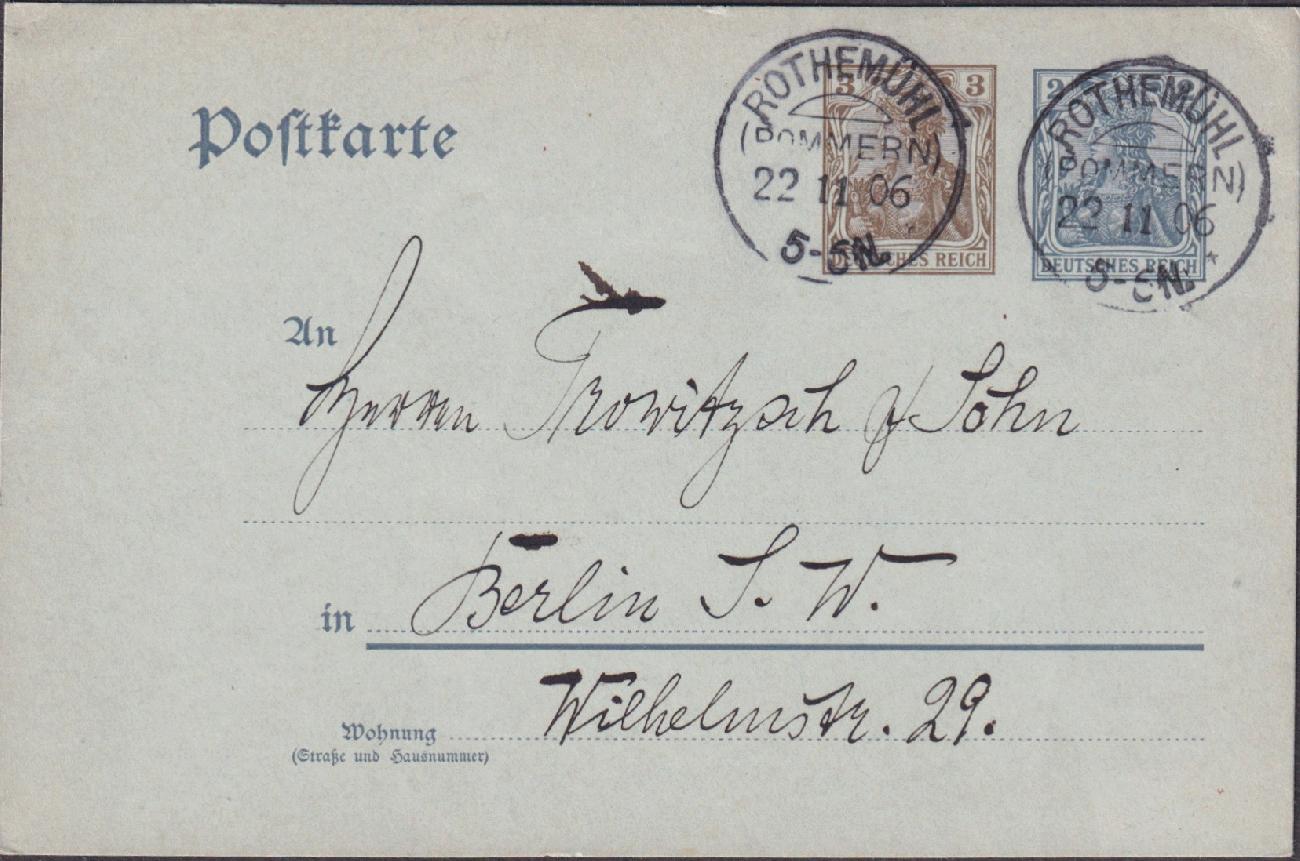 Postkarte
3 3
DEUTSCHES REICH
2
DEUTSCHES REICH
ROTHEMÜHL
(POMMERN)
22 11 06
5-6N.
ROTHEMÜHL
(POMMERN)
22 11 06
5-6N.
An
Herren Trowitzsch & Sohn
in Berlin S. W.
Wilhelmstr. 29.
Wohnung
(Straße und Hausnummer)